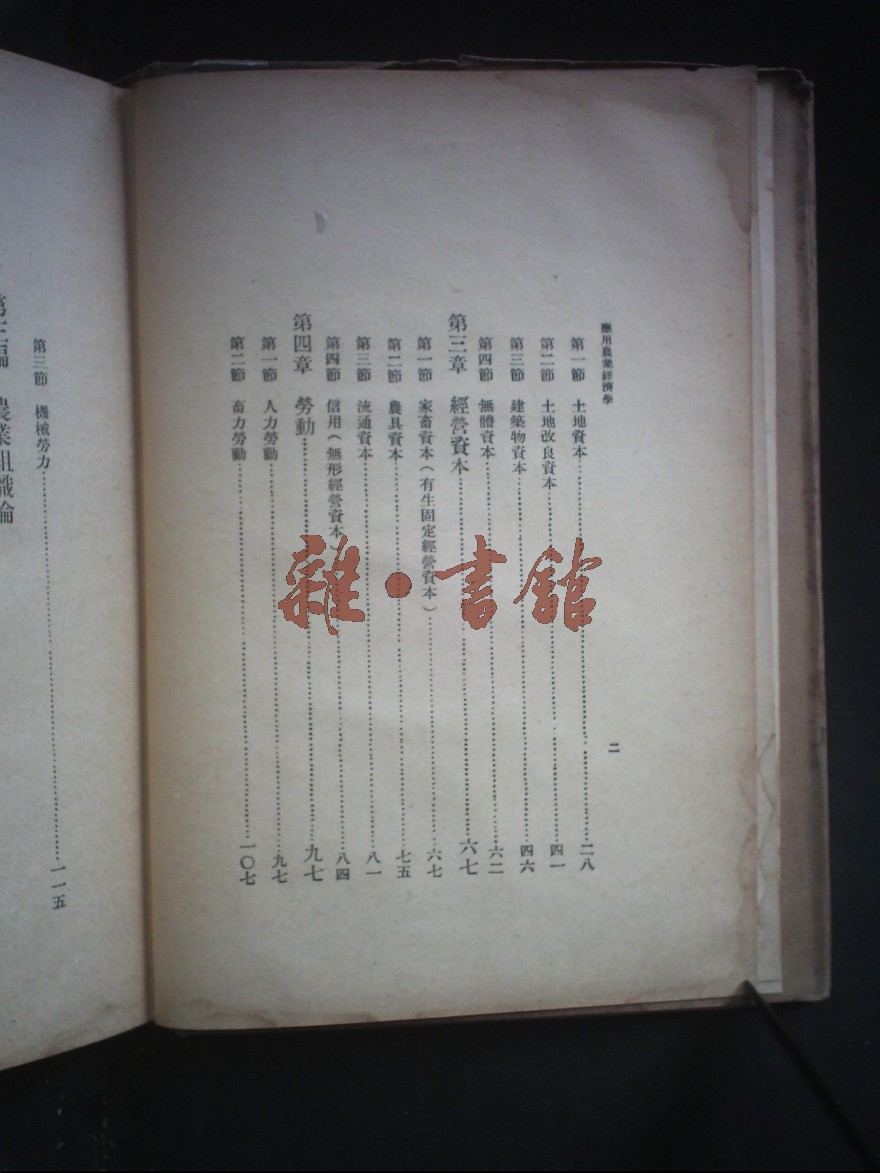 應用農業經濟學
二
第一節 土地資本 二八
第二節 土地改良資本 四一
第三節 建築物資本 四六
第四節 無體資本 六二
第三章 經營資本 六七
第一節 家畜資本(有生固定經營資本) 六七
第二節 農具資本 七五
第三節 流通資本 八一
第四節 信用(無形經營資本) 八四
第四章 勞動 九七
第一節 人力勞動 九七
第二節 畜力勞動 一〇七
第三節 機械勞力 一一五
農業組織論
雜·書館